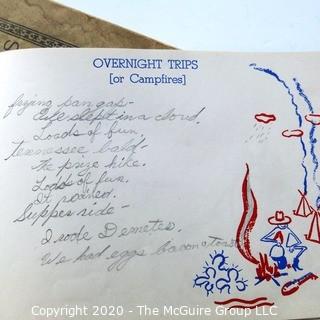 OVERNIGHT TRIPS
[or Campfires]
frying pan gap-
We slept in a cloud.
Loads of fun,
Tennessee bald-
The prize hike.
Loads of fun.
It rained.
Supper ride-
I rode Demeter.
We had eggs bacon toast
Copyright © 2020 - The McGuire Group LLC